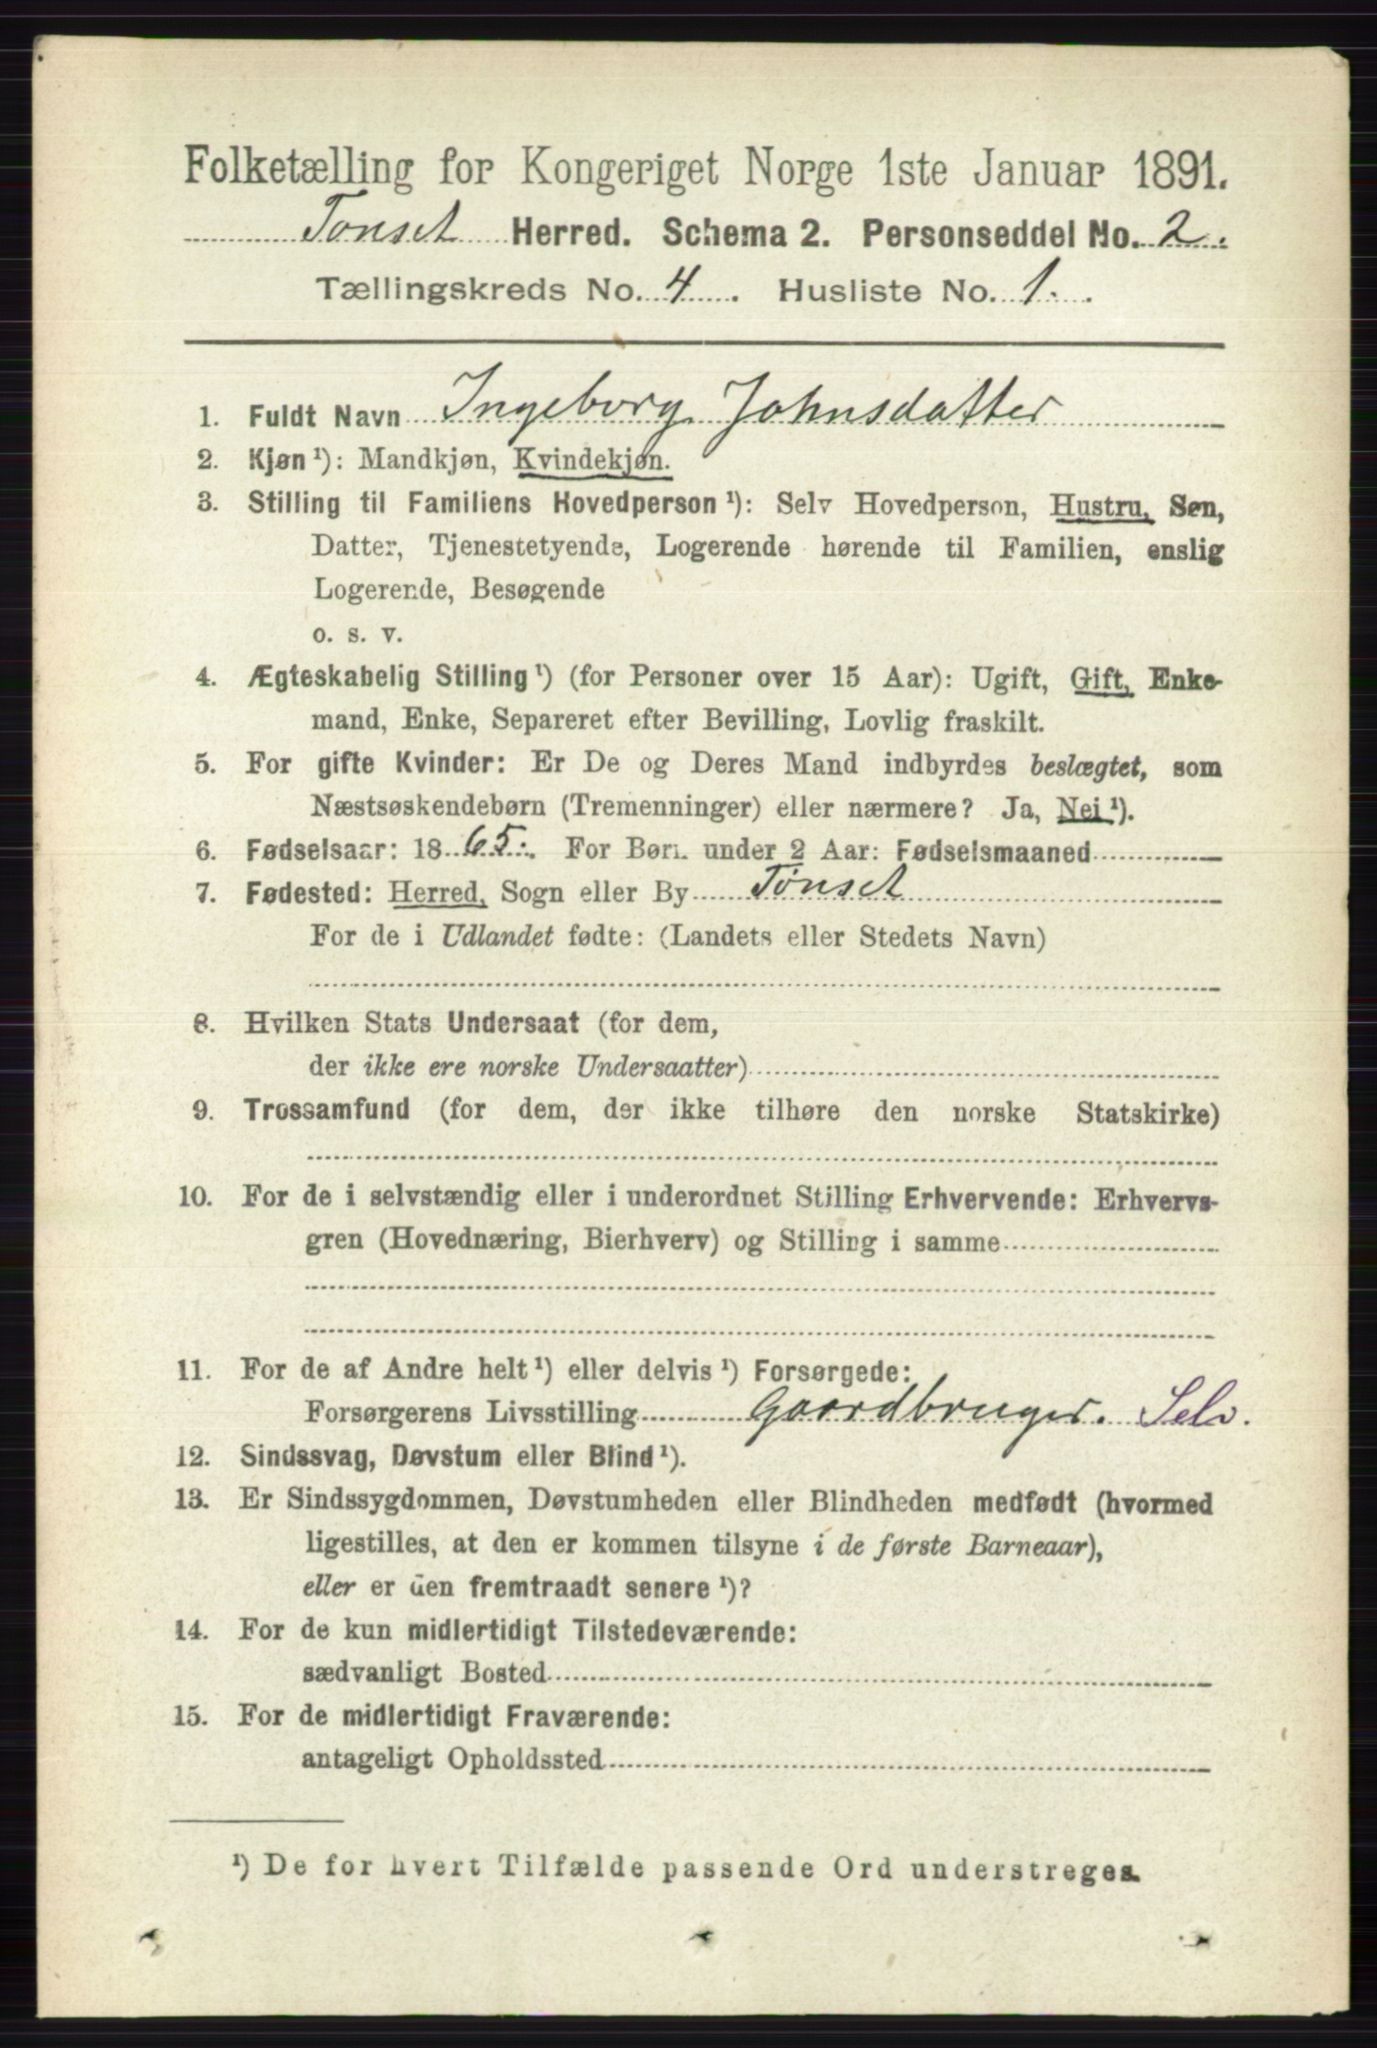 Folketælling for Kongeriget Norge 1ste Januar 1891.
Tønset Herred. Schema 2. Personseddel No. 2.
Tællingskreds No. 4. Husliste No. 1.
1. Fuldt Navn Ingeborg Johnsdatter
2. Kjøn ¹): Mandkjøn, Kvindekjøn.
3. Stilling til Familiens Hovedperson ¹): Selv Hovedperson, Hustru, Søn,
Datter, Tjenestetyende, Logerende hørende til Familien, enslig
Logerende, Besøgende
o. s. v.
4. Ægteskabelig Stilling ¹) (for Personer over 15 Aar): Ugift, Gift, Enke-
mand, Enke, Separeret efter Bevilling, Lovlig fraskilt.
5. For gifte Kvinder: Er De og Deres Mand indbyrdes beslægtet, som
Næstsøskendebørn (Tremenninger) eller nærmere? Ja, Nei ¹).
6. Fødselsaar: 1865. For Børn under 2 Aar: Fødselsmaaned
7. Fødested: Herred, Sogn eller By Tønset
For de i Udlandet fødte: (Landets eller Stedets Navn)
8. Hvilken Stats Undersaat (for dem,
der ikke ere norske Undersaatter)
9. Trossamfund (for dem, der ikke tilhøre den norske Statskirke)
10. For de i selvstændig eller i underordnet Stilling Erhvervende: Erhvervs-
gren (Hovednæring, Bierhverv) og Stilling i samme
11. For de af Andre helt ¹) eller delvis ¹) Forsørgede:
Forsørgerens Livsstilling Gaardbruger. Selv.
12. Sindssvag, Døvstum eller Blind ¹).
13. Er Sindssygdommen, Døvstumheden eller Blindheden medfødt (hvormed
ligestilles, at den er kommen tilsyne i de første Barneaar),
eller er den fremtraadt senere ¹)?
14. For de kun midlertidigt Tilstedeværende:
sædvanligt Bosted
15. For de midlertidigt Fraværende:
antageligt Opholdssted
¹) De for hvert Tilfælde passende Ord understreges.